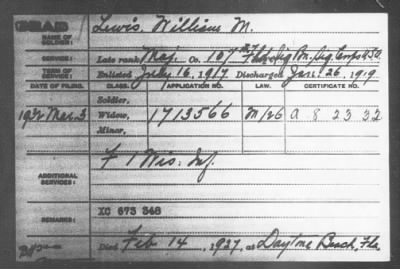 DEAD
NAME OF SOLDIER: Lewis, William M.
SERVICE: Late rank, Maj. Co. 107 Fld Sig Bn, Sig Corps USA.
TERM OF SERVICE: Enlisted July 16, 1917 Discharged Jan. 26, 1919
DATE OF FILING. CLASS. APPLICATION NO. LAW. CERTIFICATE NO.
Soldier,
Mar. 3 Widow, 1713566 A 8 23 32
Minor,
ADDITIONAL SERVICES: F 1 Wis. Inf.
REMARKS: XC 673 348
Died Feb 14, 1927, at Daytona Beach, Fla.